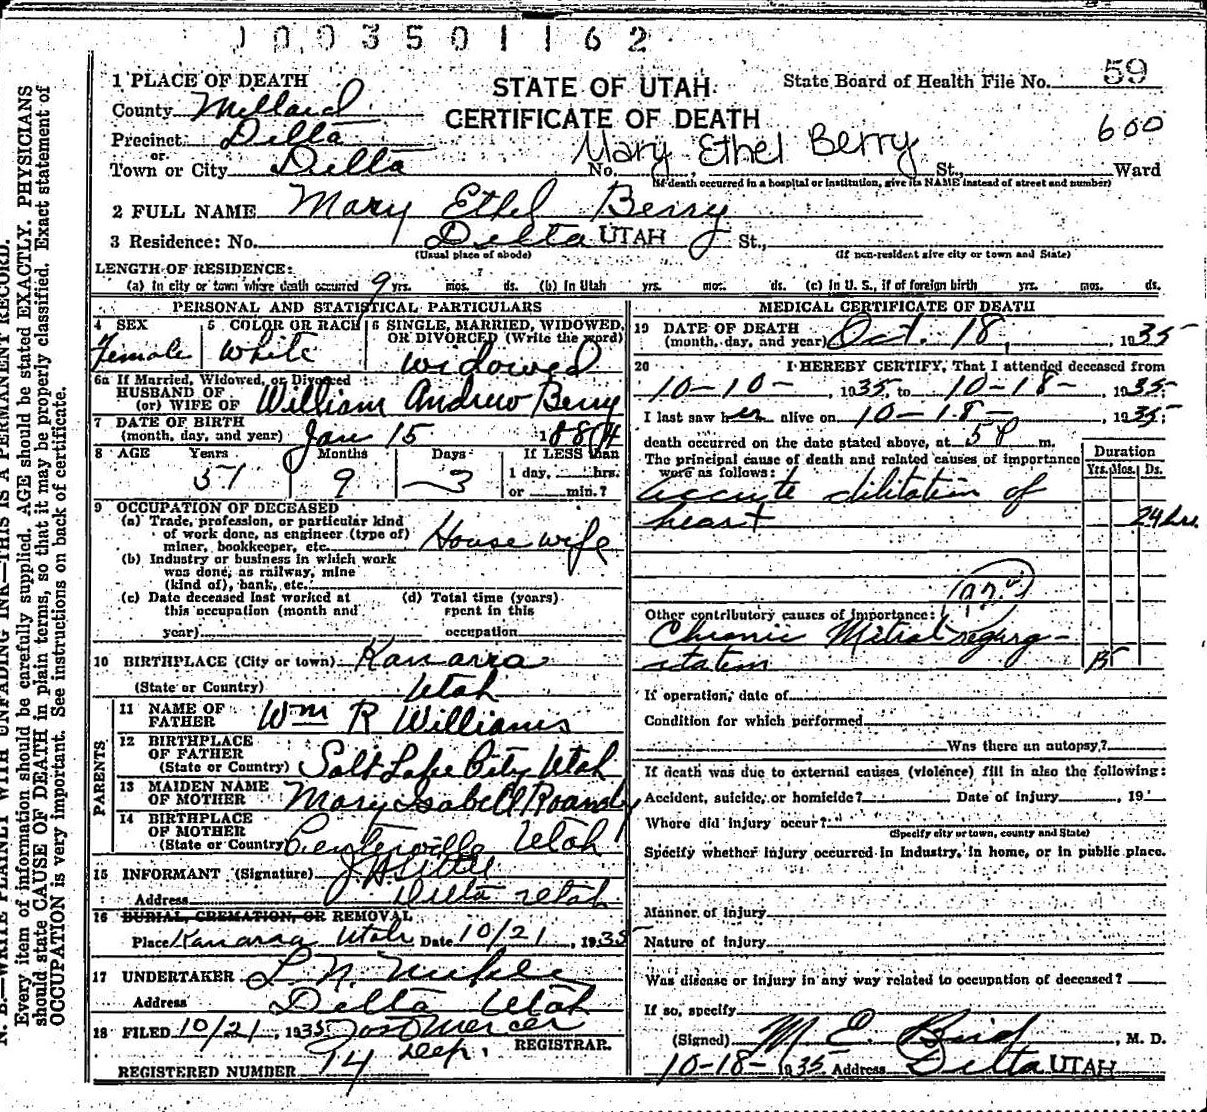 1003501162
1 PLACE OF DEATH
County Millard
Precinct Delta
or
Town or City Delta
STATE OF UTAH
CERTIFICATE OF DEATH
State Board of Health File No. 59
600
Mary Ethel Berry
No. St., Ward
(If death occurred in a hospital or institution, give its NAME instead of street and number)
2 FULL NAME Mary Ethel Berry
3 Residence: No. Delta UTAH St.,
(Usual place of abode) (If non-resident give city or town and State)
LENGTH OF RESIDENCE:
(a) In city or town where death occurred 9 yrs. mos. ds. (b) In Utah yrs. mos. ds. (c) In U. S., if of foreign birth yrs. mos. ds.
PERSONAL AND STATISTICAL PARTICULARS
4 SEX Female
5 COLOR OR RACE White
6 SINGLE, MARRIED, WIDOWED, OR DIVORCED (Write the word) widowed
6a If Married, Widowed, or Divorced
HUSBAND OF
(or) WIFE OF William Andrew Berry
7 DATE OF BIRTH
(month, day, and year) Jan 15 1884
8 AGE Years 51 Months 9 Days 3 If LESS than
1 day, hrs.
or min.?
9 OCCUPATION OF DECEASED
(a) Trade, profession, or particular kind
of work done, as engineer (type of)
miner, bookkeeper, etc. Housewife
(b) Industry or business in which work
was done, as railway, mine
(kind of), bank, etc.
(c) Date deceased last worked at
this occupation (month and
year)
(d) Total time (years)
spent in this
occupation
10 BIRTHPLACE (City or town) Kanarra
(State or Country) Utah
PARENTS
11 NAME OF
FATHER Wm R Williams
12 BIRTHPLACE
OF FATHER
(State or Country) Salt Lake City Utah
13 MAIDEN NAME
OF MOTHER Mary Isabell Roundy
14 BIRTHPLACE
OF MOTHER
(State or Country) Centerville Utah
15 INFORMANT (Signature)
Address Delta Utah
16 BURIAL, CREMATION, OR REMOVAL
Place Kanarra Utah Date 10/21, 1935
17 UNDERTAKER L. N.
Address Delta Utah
18 FILED 10/21, 1935 Jos Mercer
Dep. REGISTRAR.
REGISTERED NUMBER 74
MEDICAL CERTIFICATE OF DEATH
19 DATE OF DEATH
(month, day, and year) Oct. 18, 1935
20 I HEREBY CERTIFY, That I attended deceased from
10-10-, 1935, to 10-18-, 1935.
I last saw her alive on 10-18-, 1935;
death occurred on the date stated above, at 5 P m.
The principal cause of death and related causes of importance
were as follows:
Duration
Yrs. Mos. Ds.
accute dilitation of
heart 24 hrs.
Other contributory causes of importance:
Chronic Mitral regurg-
itation 15
If operation, date of
Condition for which performed
Was there an autopsy?
If death was due to external causes (violence) fill in also the following:
Accident, suicide, or homicide? Date of injury , 19
Where did injury occur?
(Specify city or town, county and State)
Specify whether injury occurred in Industry, in home, or in public place.
Manner of injury
Nature of injury
Was disease or injury in any way related to occupation of deceased?
If so, specify
(Signed) M. E. Bird, M. D.
10-18-1935 Address Delta UTAH
N. B.—WRITE PLAINLY WITH UNFADING INK—THIS IS A PERMANENT RECORD.
Every item of information should be carefully supplied. AGE should be stated EXACTLY. PHYSICIANS
should state CAUSE OF DEATH in plain terms, so that it may be properly classified. Exact statement of
OCCUPATION is very important. See instructions on back of certificate.